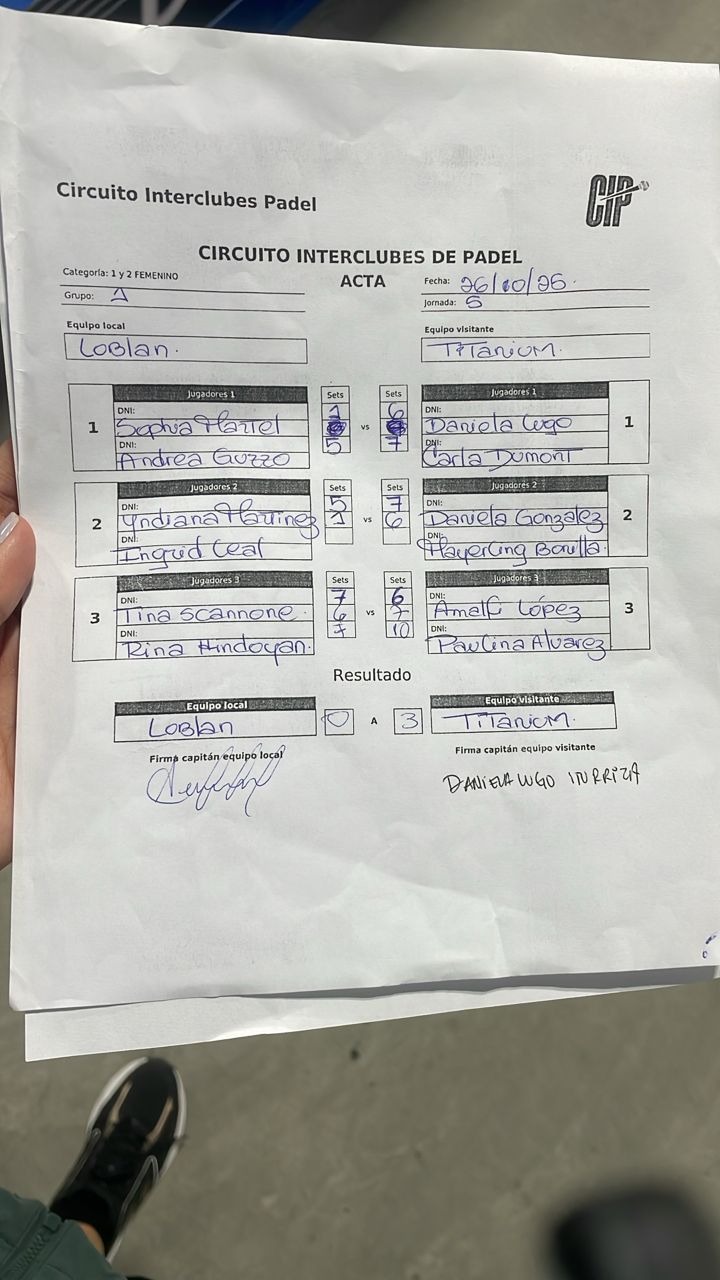 Circuito Interclubes Padel
CIP
CIRCUITO INTERCLUBES DE PADEL
Categoría: 1 y 2 FEMENINO
ACTA
Fecha: 26/10/25.
Grupo: 1
Jornada: 5
Equipo local
Equipo visitante
LOBlan.
TITanium.
Jugadores 1 Sets Sets Jugadores 1
DNI: 1 6 DNI:
1 Sophia Martel vs Daniela Lugo 1
DNI: 5 7 DNI:
Andrea Guzzo Carla Dumont
Jugadores 2 Sets Sets Jugadores 2
DNI: 5 7 DNI:
2 Yndiana Martinez 1 vs 6 Daniela Gonzalez 2
DNI: DNI:
Ingrid Leal Mayerling Bonilla.
Jugadores 3 Sets Sets Jugadores 3
DNI: 7 6 DNI:
3 Tina Scannone. 6 vs 7 Amelfi López 3
DNI: 7 10 DNI:
Rina Hindoyan. Paulina Alvarez
Resultado
Equipo local Equipo visitante
LOBlan 0 A 3 TITanium.
Firma capitán equipo local Firma capitán equipo visitante
DANIELA LUGO ITURRIZA